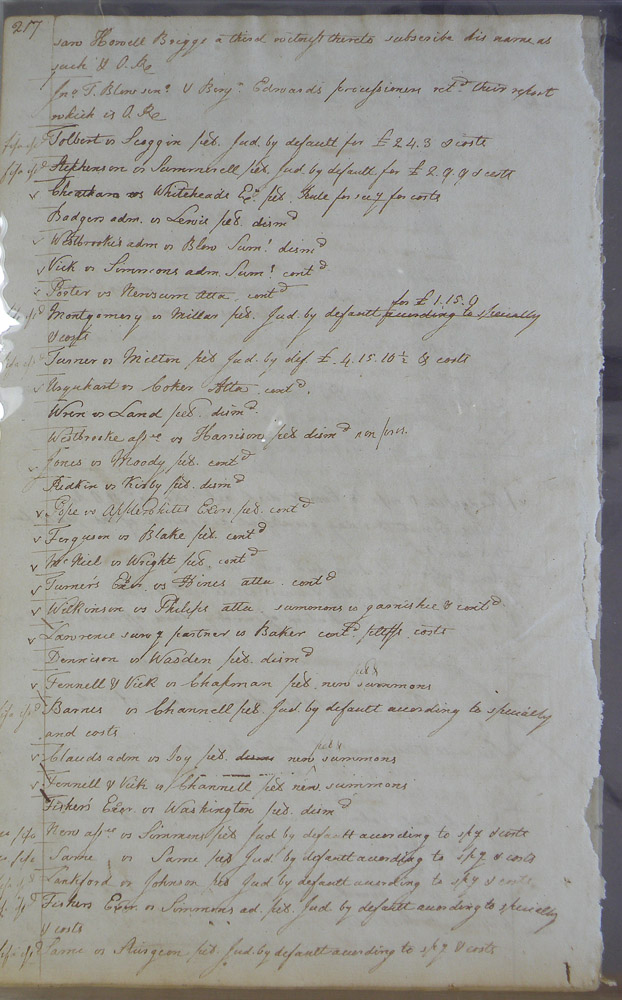 217
saw Howell Briggs a third witness thereto subscribe his name as
such & O.R.
Jno. T. Blow senr. & Benjn. Edwards processioners retd. their report
which is O.R.
fifa ifsd Tolbert vs Scoggin pet. Jud. by default for £24.3 & costs
fifa ifsd Stephenson vs Summerell pet. Jud. by default for £2.9.9 & costs
v Cheatham vs Whiteheads Ex. pet. Rule for secy for costs
Badgers adm. vs Lewis pet. dismd
v Westbrooks adm vs Blow Sum! dismd
v Vick vs Simmons adm Sum! contd
v Foster vs Newsum atta. contd
for £1.15.9
Montgomery vs Millar pet. Jud. by default according to specially
& costs
Turner vs Milton pet Jud. by def £4.15.10½ & costs
v Urquhart vs Coker Atta. contd.
Wren vs Land pet. dismd.
Westbrooke assee vs Harrison pet dismd non pros.
v Jones vs Moody pet. contd
Redkin vs Kirby pet. dismd
v Pope vs Applewhites Exrs pet. contd
v Ferguson vs Blake pet. contd
v McNiel vs Wright pet. contd
v Turner's Exr. vs Hines atta. contd
v Wilkinson vs Philips atta. summons vs garnishee & contd.
v Lawrence survg partner vs Baker contd pltffs. costs
Dennison vs Wasden pet. dismd
pet &
v Fennell & Vick vs Chapman pet. new summons
fifa ifsd Barnes vs Channell pet. Jud. by default according to specialty
and costs
pet &
v Clauds adm vs Joy pet. dism new summons
v Fennell & Vick vs Channell pet new summons
Fisher's Exor vs Washington pet. dismd
fifa New assee vs Simmons pet Jud by default according to spy & costs
fifa Same vs Same pet Jud. by default according to spy & costs
Lankford vs Johnson pet Jud by default according to spy & costs
Fishers Exor. vs Simmons ad. pet. Jud by default according to specialty
& costs
fifa ifsd Same vs Sturgeon pet. Jud. by default according to spy & costs